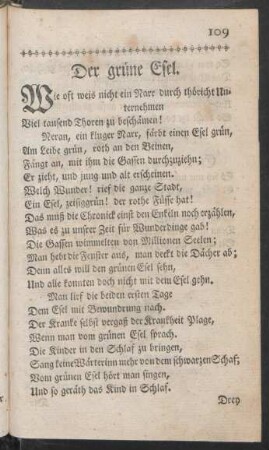 109
Der grüne Esel.
Wie oft weis nicht ein Narr durch thöricht Un-
ternehmen
Viel tausend Thoren zu beschämen!
Neran, ein kluger Narr, färbt einen Esel grün,
Am Leibe grün, roth an den Beinen,
Fängt an, mit ihm die Gassen durchzuziehn;
Er zieht, und jung und alt erscheinen.
Welch Wunder! rief die ganze Stadt,
Ein Esel, zeisiggrün! der rothe Füsse hat!
Das muß die Chronick einst den Enkeln noch erzählen,
Was es zu unsrer Zeit für Wunderdinge gab!
Die Gassen wimmelten von Millionen Seelen;
Man hebt die Fenster aus, man deckt die Dächer ab;
Denn alles will den grünen Esel sehn,
Und alle konnten doch nicht mit dem Esel gehn.
Man lief die beiden ersten Tage
Dem Esel mit Bewundrung nach.
Der Kranke selbst vergaß der Krankheit Plage,
Wenn man vom grünen Esel sprach.
Die Kinder in den Schlaf zu bringen,
Sang keine Wärterinn mehr von dem schwarzen Schaf;
Vom grünen Esel hört man singen,
Und so geräth das Kind in Schlaf.
Drey